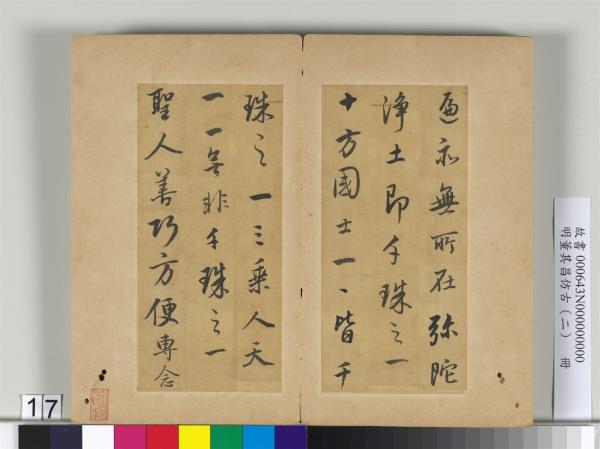 遍亦無所在弥陀
淨土即千珠之一
十方國土一一皆千
珠之一三乘人天
一一無非千珠之一
聖人善巧方便專念
故書 000643N000000000
明董其昌仿古(二) 冊
17